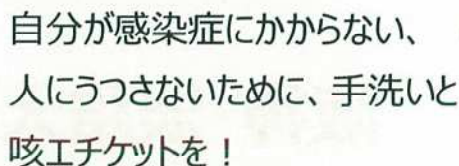 自分が感染症にかからない、
人にうつさないために、手洗いと
咳エチケットを！